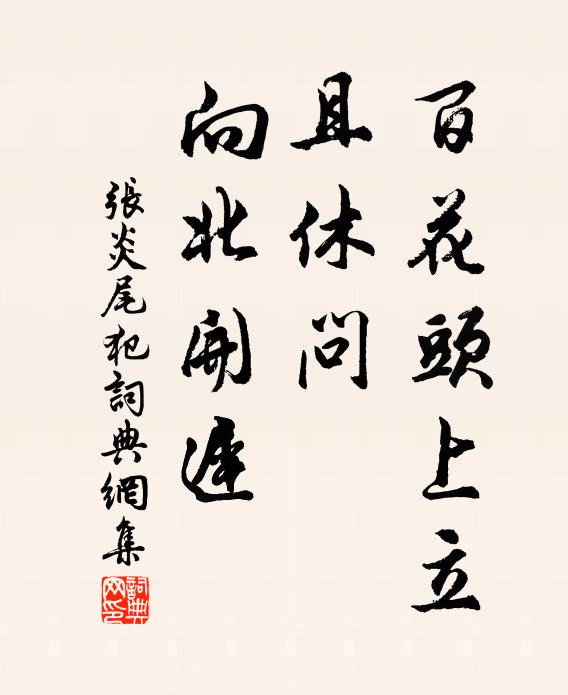 百花頭上立
且休問
向北開遲
張炎尾犯詞典網集
詞典网印